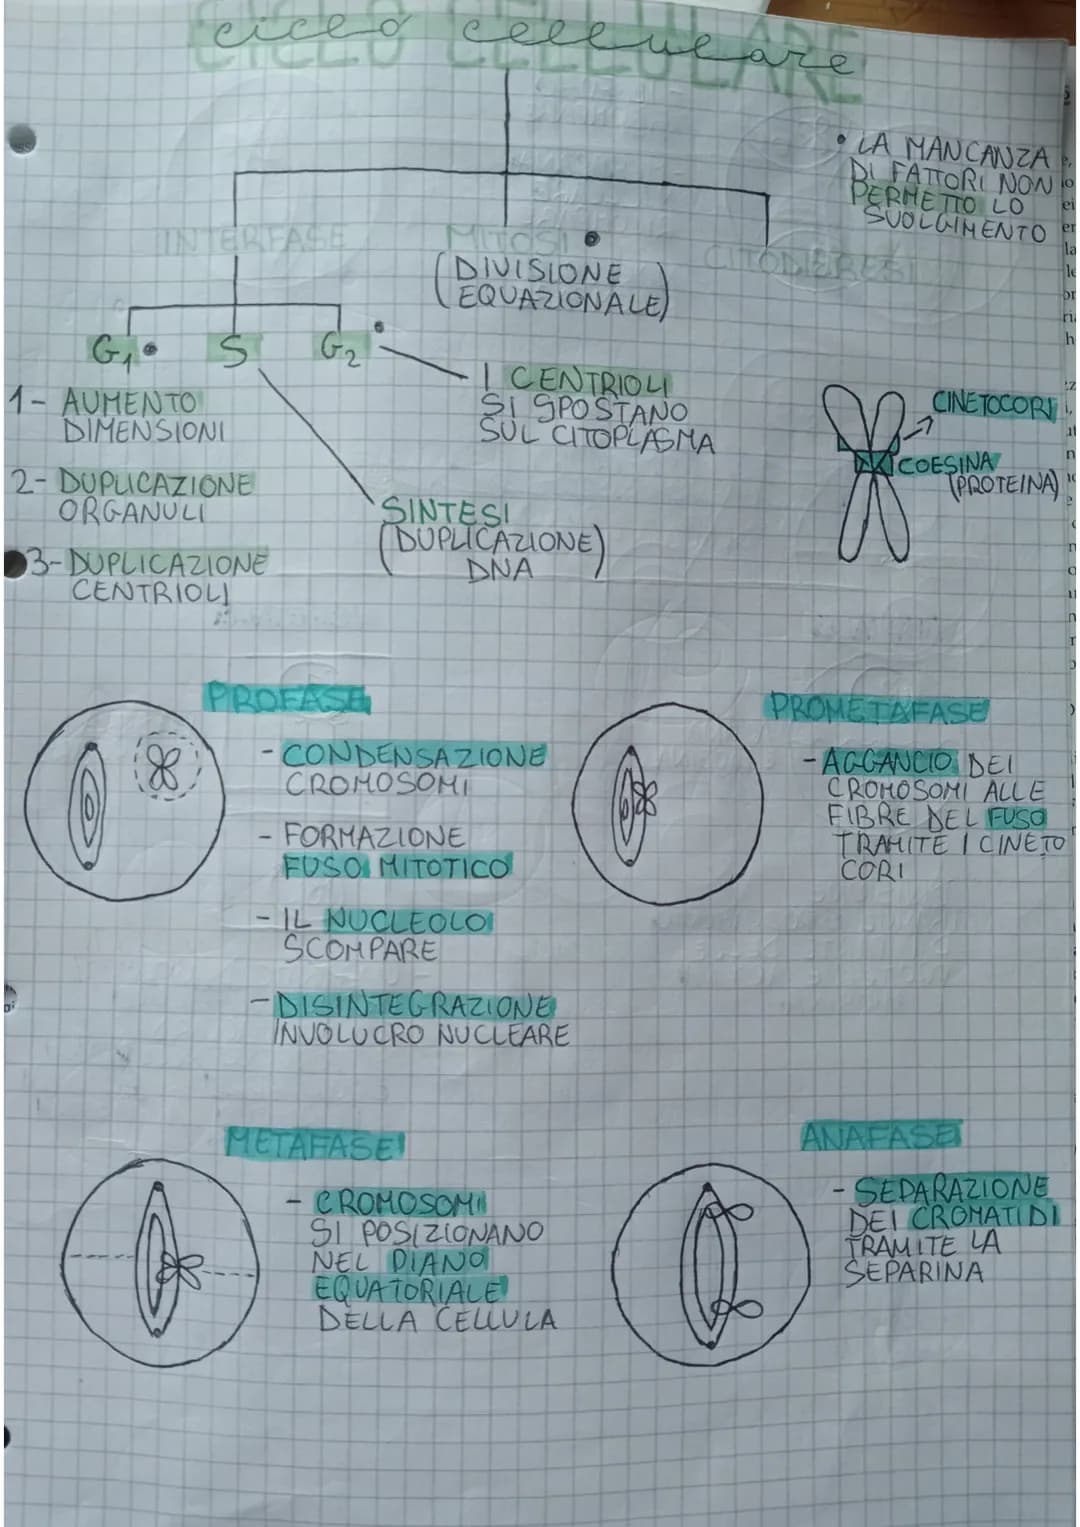 CICLO CELLULARE
ciclo cellulare
• LA MANCANZA
DI FATTORI NON
PERMETTO LO
SVOLGIMENTO
INTERFASE
MITOSI •
(DIVISIONE
EQUAZIONALE)
CITODIERESI
G1 •
S
G2 •
1- AUMENTO
DIMENSIONI
2- DUPLICAZIONE
ORGANULI
3- DUPLICAZIONE
CENTRIOLI
I CENTRIOLI
SI SPOSTANO
SUL CITOPLASMA
SINTESI
(DUPLICAZIONE)
DNA
CINETOCORI
COESINA
(PROTEINA)
PROFASE
- CONDENSAZIONE
CROMOSOMI
- FORMAZIONE
FUSO MITOTICO
- IL NUCLEOLO
SCOMPARE
- DISINTEGRAZIONE
INVOLUCRO NUCLEARE
PROMETAFASE
- AGGANCIO DEI
CROMOSOMI ALLE
FIBRE DEL FUSO
TRAMITE I CINETO
CORI
METAFASE
- CROMOSOMI
SI POSIZIONANO
NEL PIANO
EQUATORIALE
DELLA CELLULA
ANAFASE
- SEPARAZIONE
DEI CROMATIDI
TRAMITE LA
SEPARINA